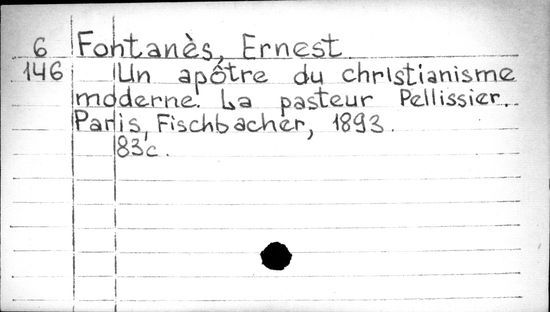 6 Fontanès, Ernest
146 Un apôtre du christianisme
moderne. La pasteur Pellissier.
Paris, Fischbacher, 1893.
83c.